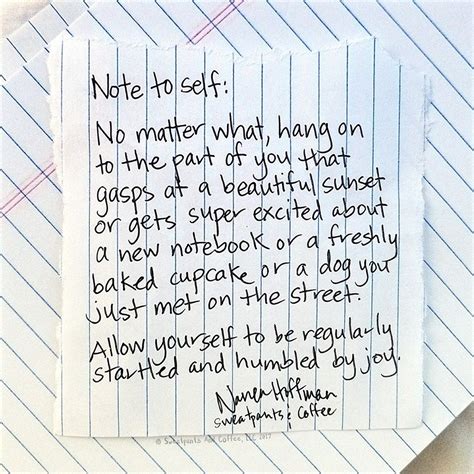 Note to self:
No matter what, hang on
to the part of you that
gasps at a beautiful sunset
or gets super excited about
a new notebook or a freshly
baked cupcake or a dog you
just met on the street.
Allow yourself to be regularly
startled and humbled by joy.
Nanea Hoffman
Sweatpants & Coffee
© Sweatpants And Coffee, LLC 2017